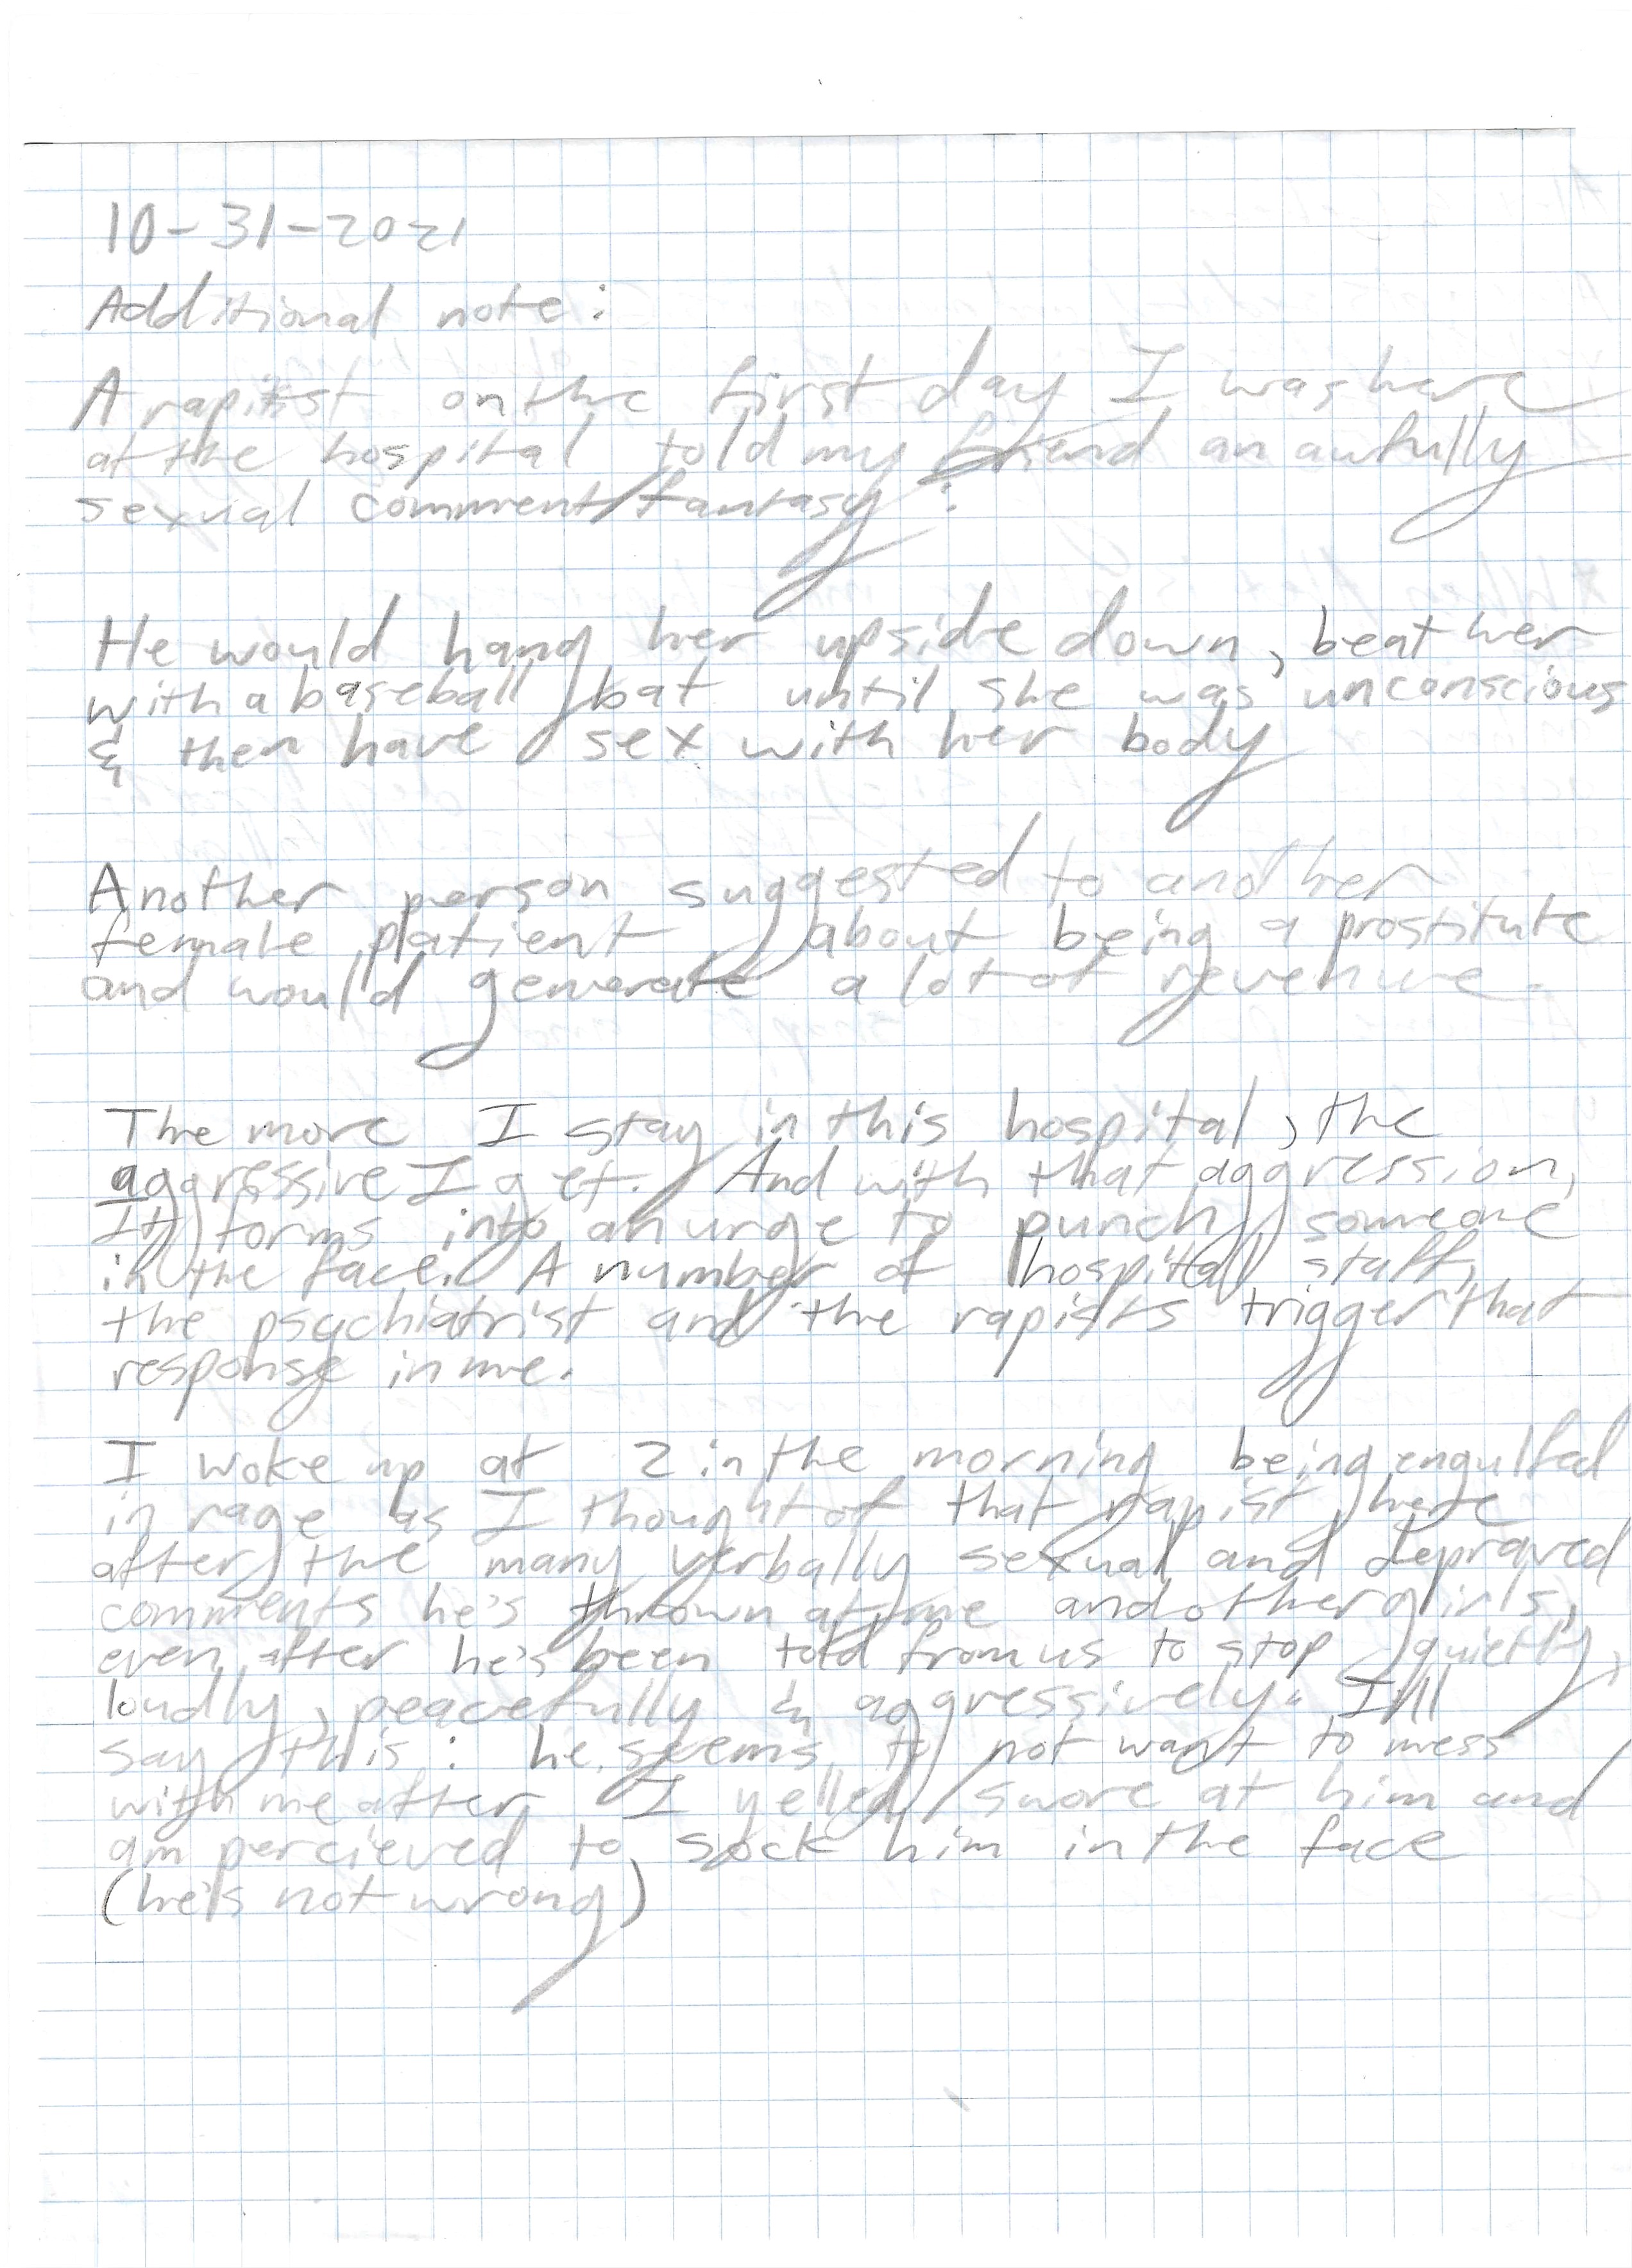 10-31-2021
Additional note:
A rapist on the first day I was here
at the hospital told my friend an awfully
sexual comment/fantasy:
He would hang her upside down, beat her
with a baseball bat until she was unconscious
& then have sex with her body
Another person suggested to another
female patient about being a prostitute
and would generate a lot of revenue.
The more I stay in this hospital, the
aggressive I get. And with that aggression,
It forms into an urge to punch someone
in the face. A number of hospital staff,
the psychiatrist and the rapists trigger that
response in me.
I woke up at 2 in the morning being engulfed
in rage as I thought of that rapist here
after the many verbally sexual and depraved
comments he's thrown at me and other girls,
even after he's been told from us to stop quietly,
loudly, peacefully & aggressively. I'll
say this: he seems to not want to mess
with me after I yelled/swore at him and
am percieved to sock him in the face
(he's not wrong)